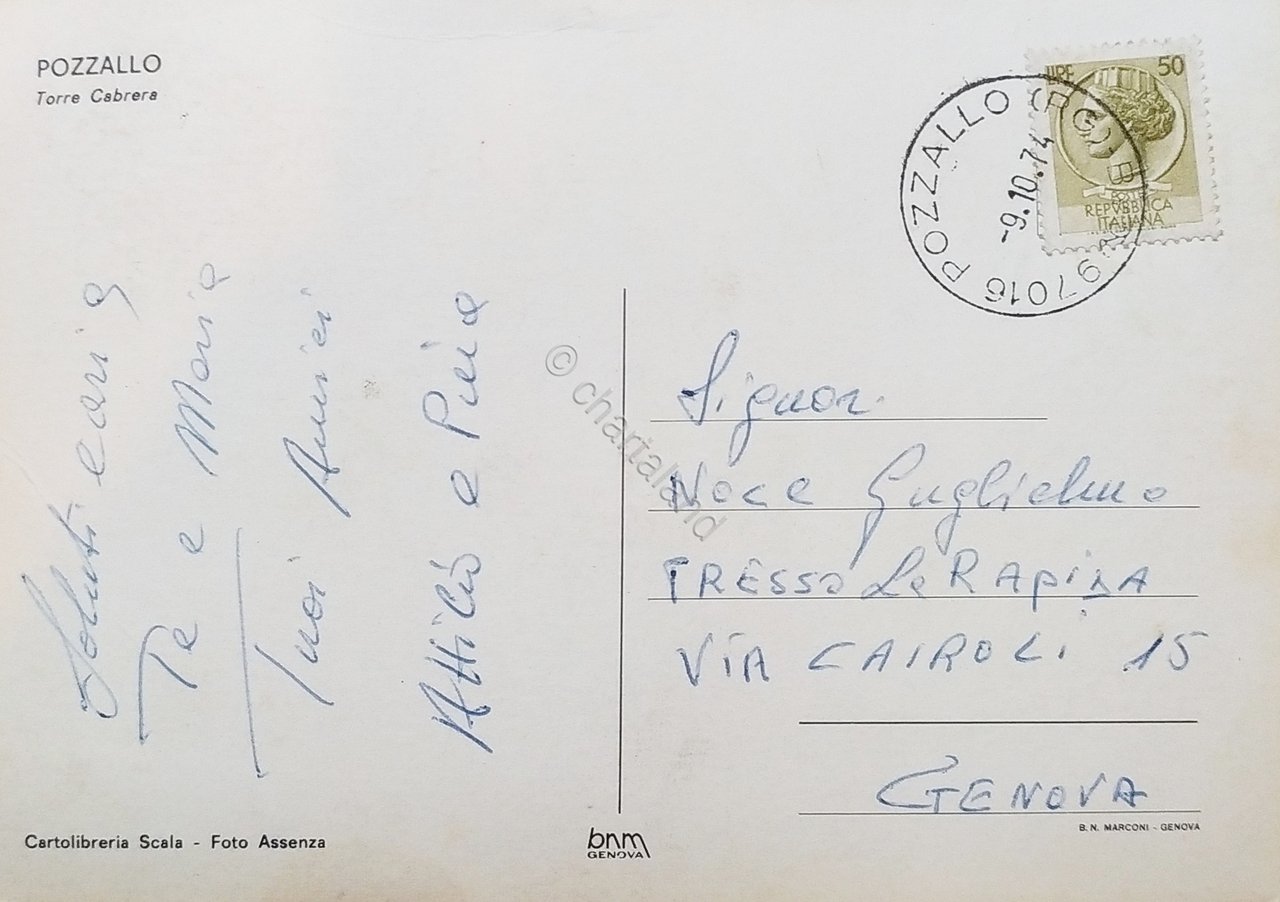 POZZALLO
Torre Cabrera
LIRE 50
POSTE
REPVBBLICA
ITALIANA
97016 POZZALLO (RG)
-9.10.74
Saluti cari a
Te e Maria
Tuoi Amici
Attilio e Piera
Signor.
Noce Guglielmo
PRESSO Le RApida
VIA CAIROLI 15
GENOVA
© chartaland
Cartolibreria Scala - Foto Assenza
bnm
GENOVA
B. N. MARCONI - GENOVA